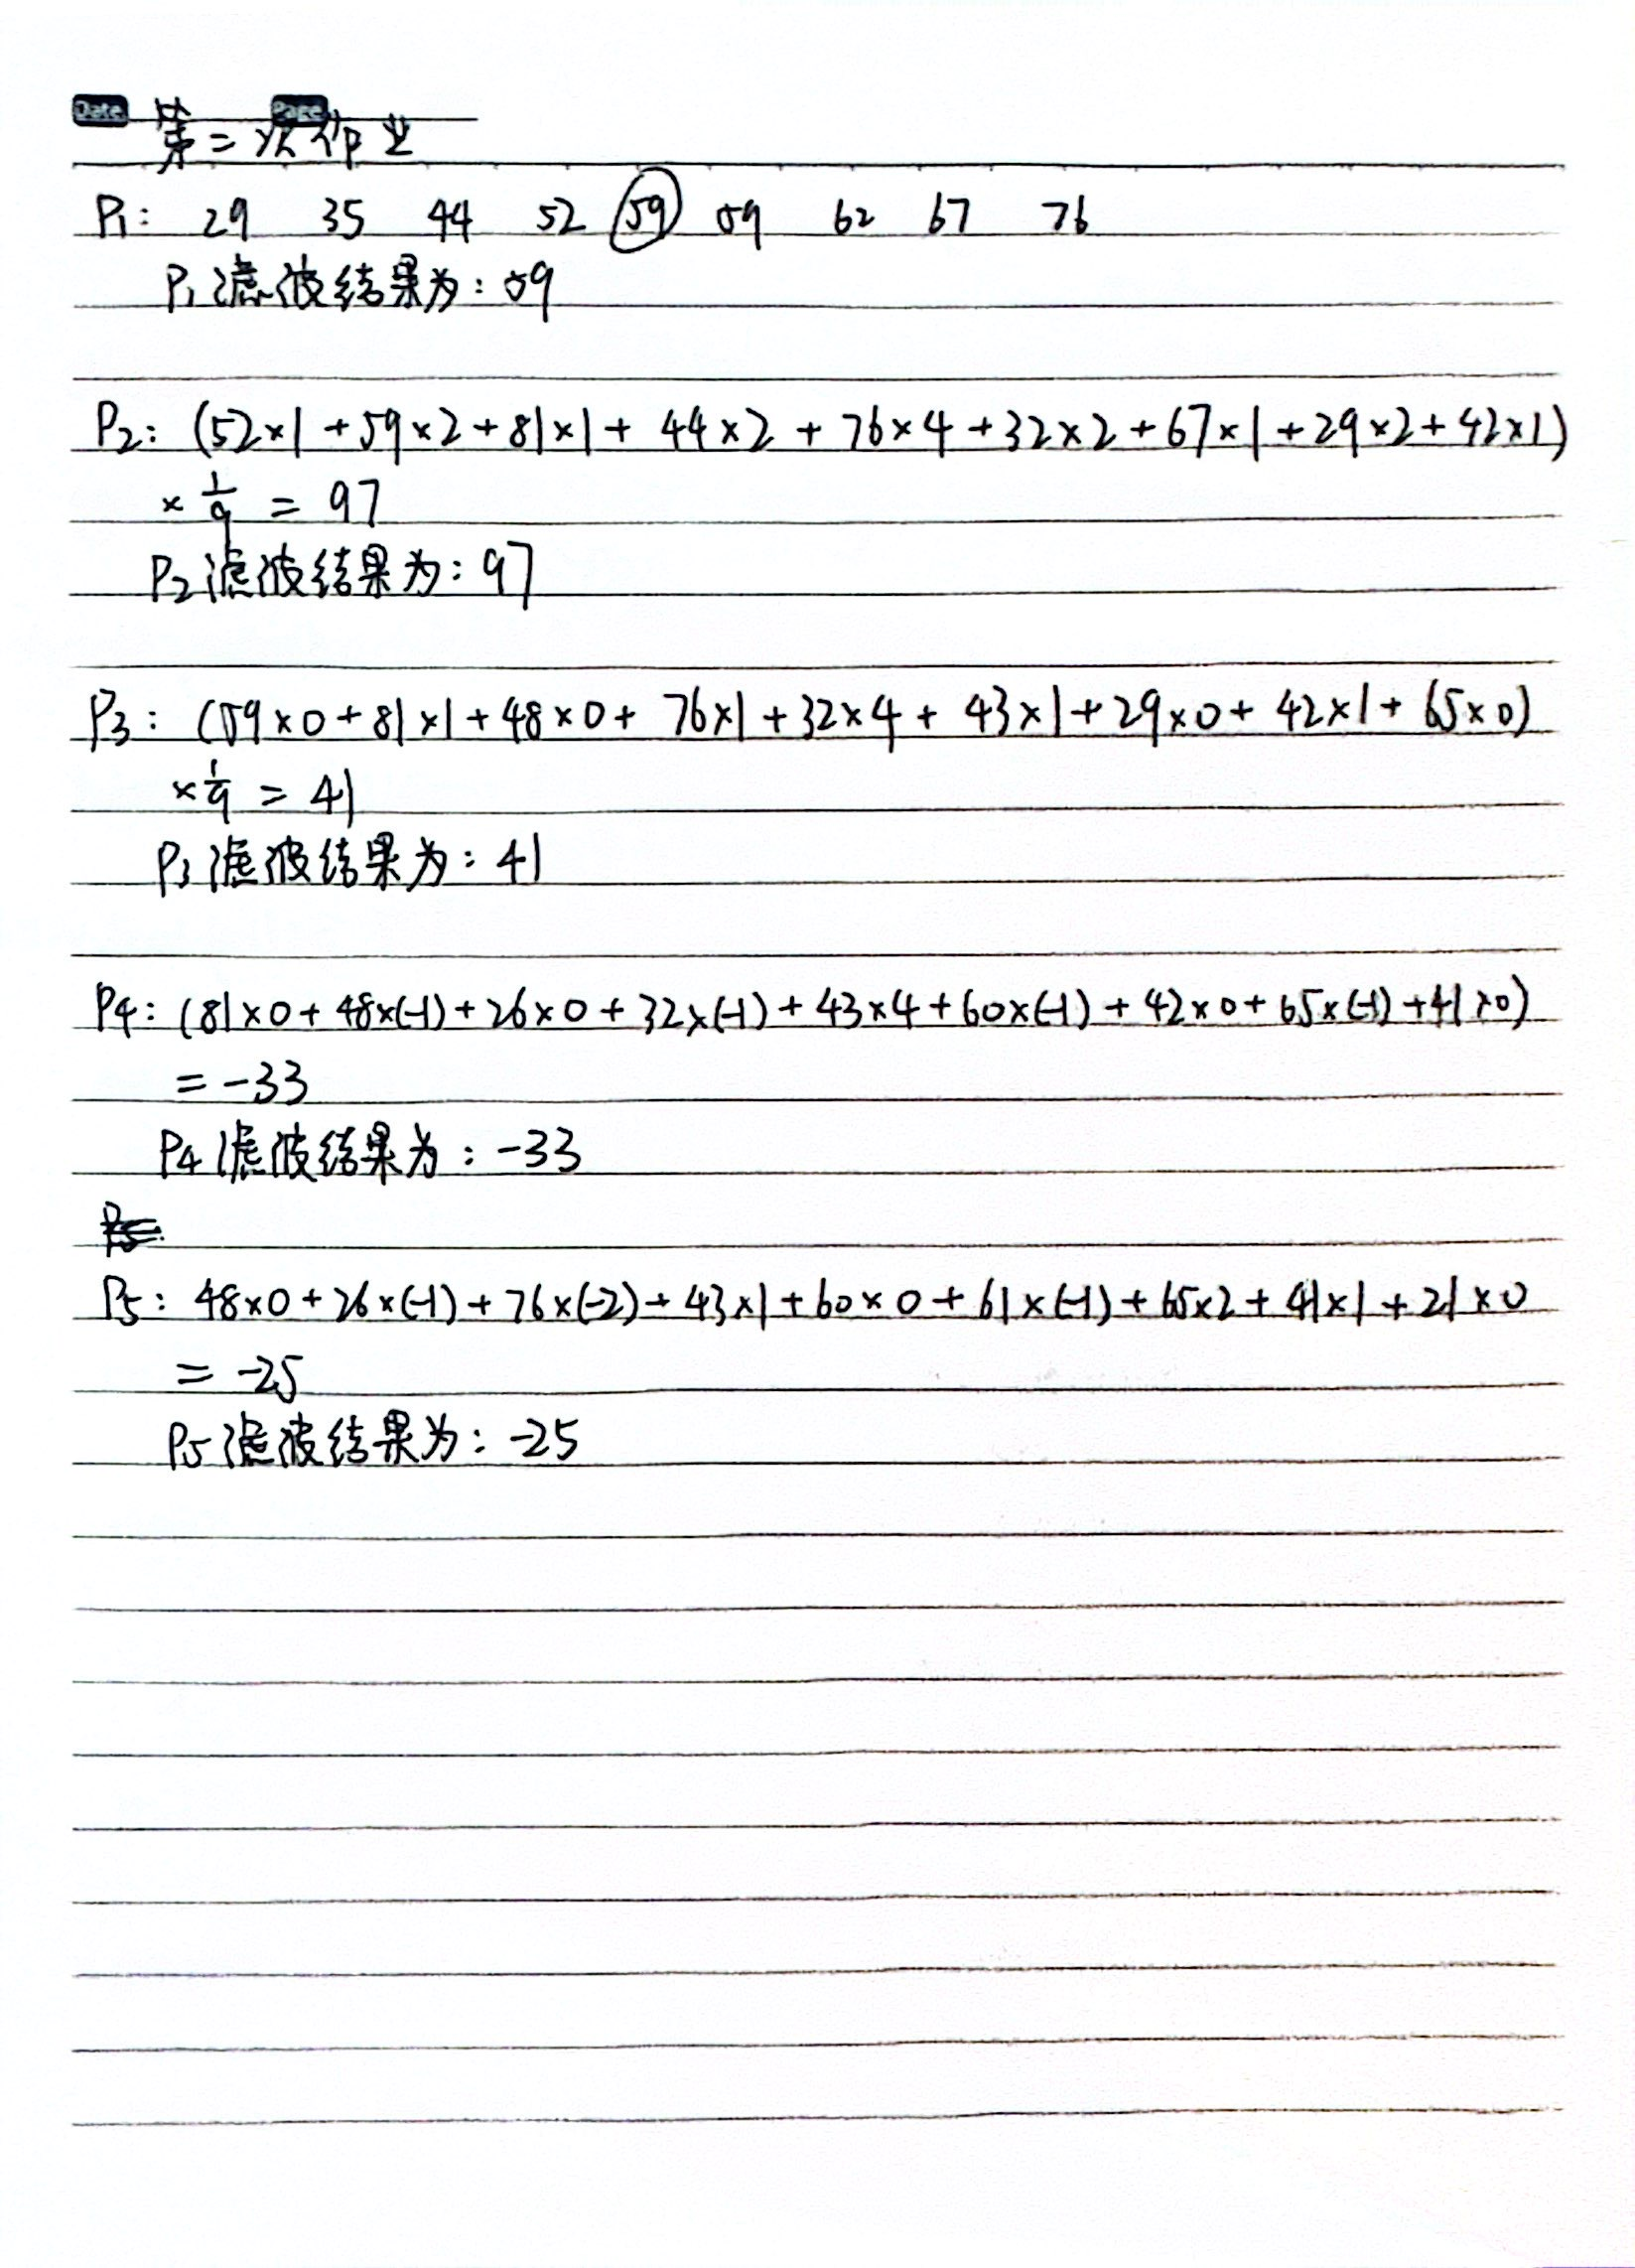 Date Page
第二次作业
P1: 29 35 44 52 59 59 62 67 76
P1滤波结果为:59
P2: (52×1+59×2+81×1+44×2+76×4+32×2+67×1+29×2+42×1)
×1/9=97
P2滤波结果为:97
P3: (59×0+81×1+48×0+76×1+32×4+43×1+29×0+42×1+65×0)
×1/9=41
P3滤波结果为:41
P4: (81×0+48×(-1)+26×0+32×(-1)+43×4+60×(-1)+42×0+65×(-1)+41×0)
=-33
P4滤波结果为:-33
P5: 48×0+26×(-1)+76×(-2)+43×1+60×0+61×(-1)+65×2+41×1+21×0
=-25
P5滤波结果为:-25